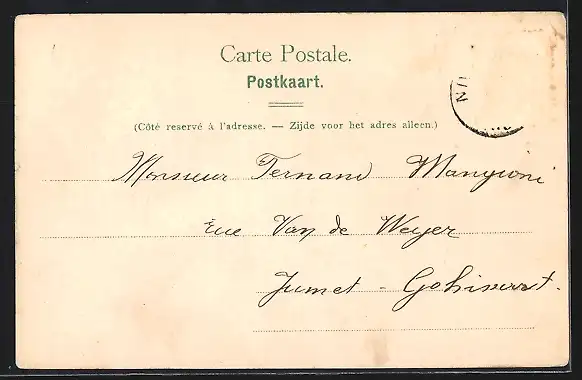 Carte Postale.
Postkaart.
(Côté reservé à l'adresse. — Zijde voor het adres alleen.)
Monsieur Fernand Mangioni
rue Van de Weyer
Jumet - Gohissart.